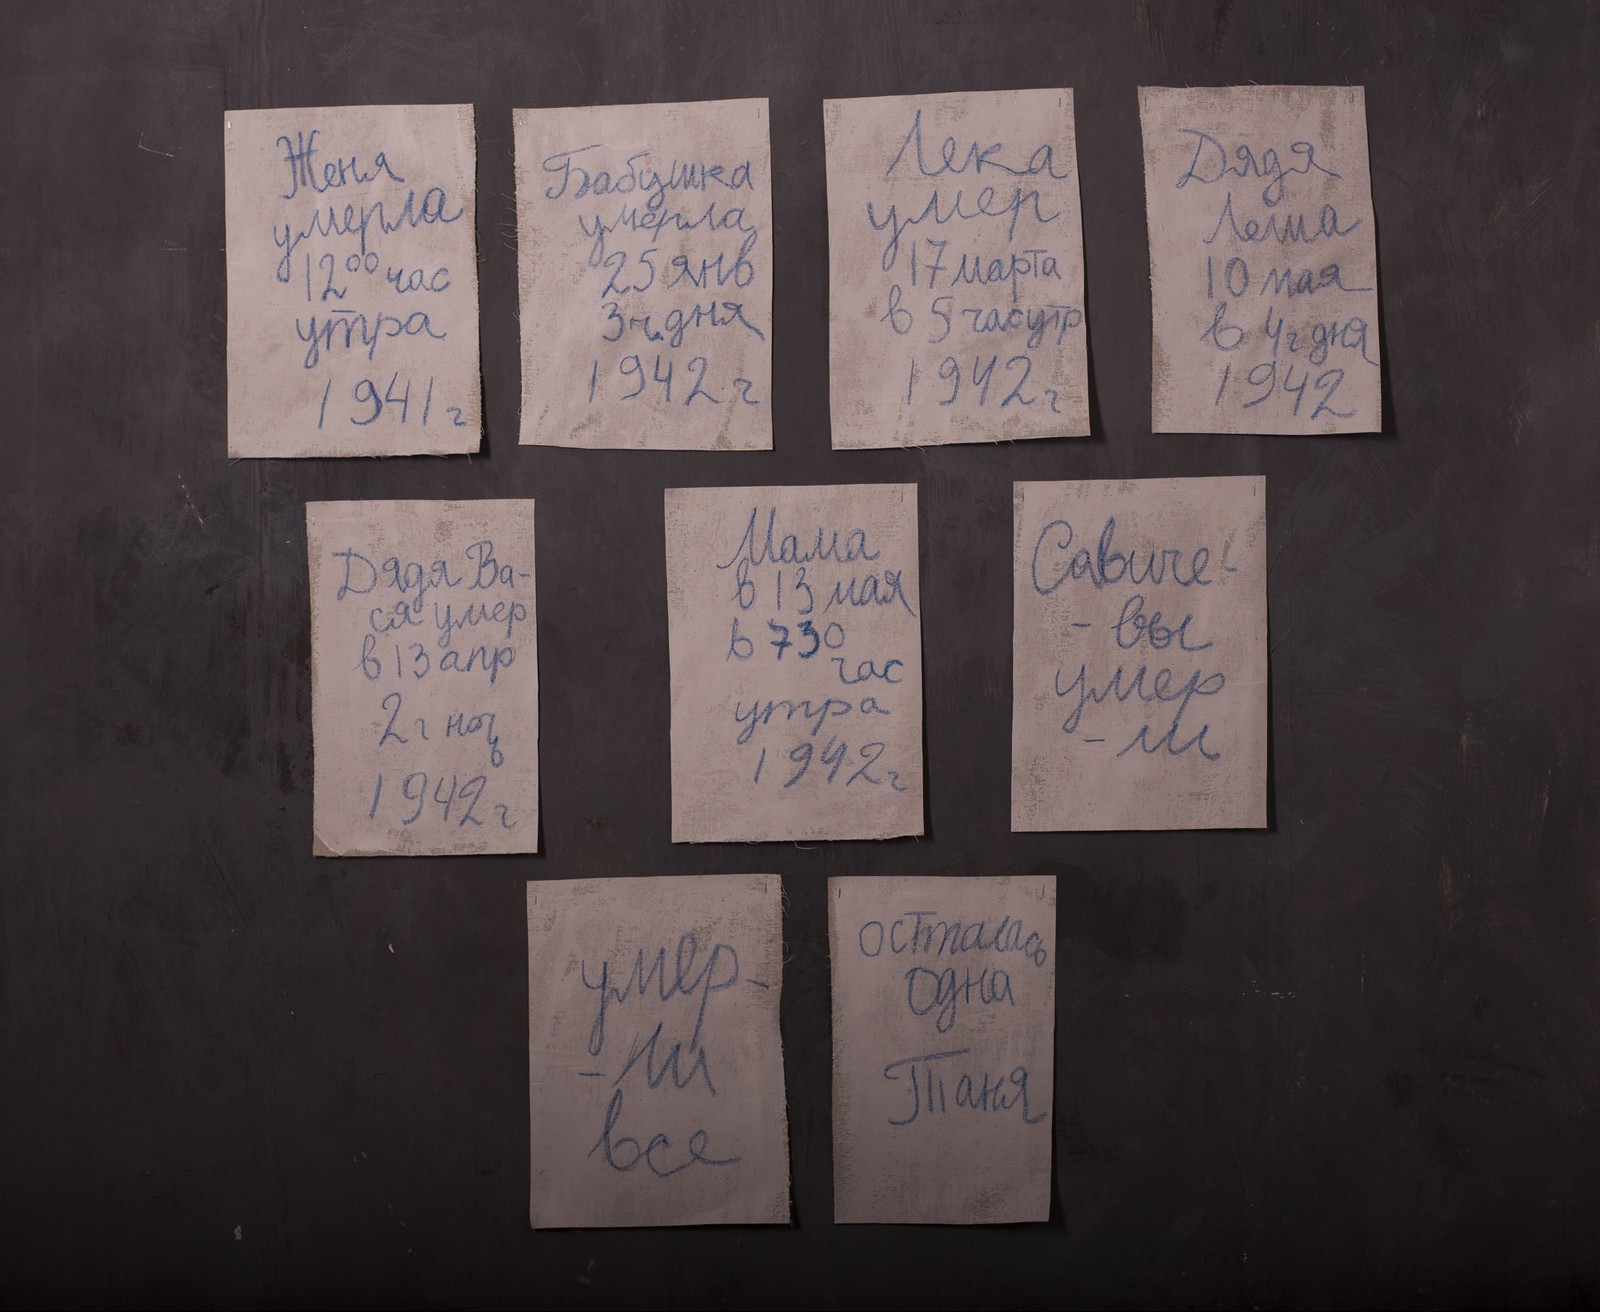 Женя
умерла
12⁰⁰ час
утра
1941 г
Бабушка
умерла
25 янв
3 ч. дня
1942 г
Лека
умер
17 марта
в 5 час утр
1942 г
Дядя
Леша
10 мая
в 4 ч дня
1942
Дядя Ва-
ся умер
в 13 апр
2 ч ноч
ь
1942 г
Мама
в 13 мая
в 730
час
утра
1942 г
Савиче-
- вы
умер
- ли
умер-
- ли
все
осталась
одна
Таня